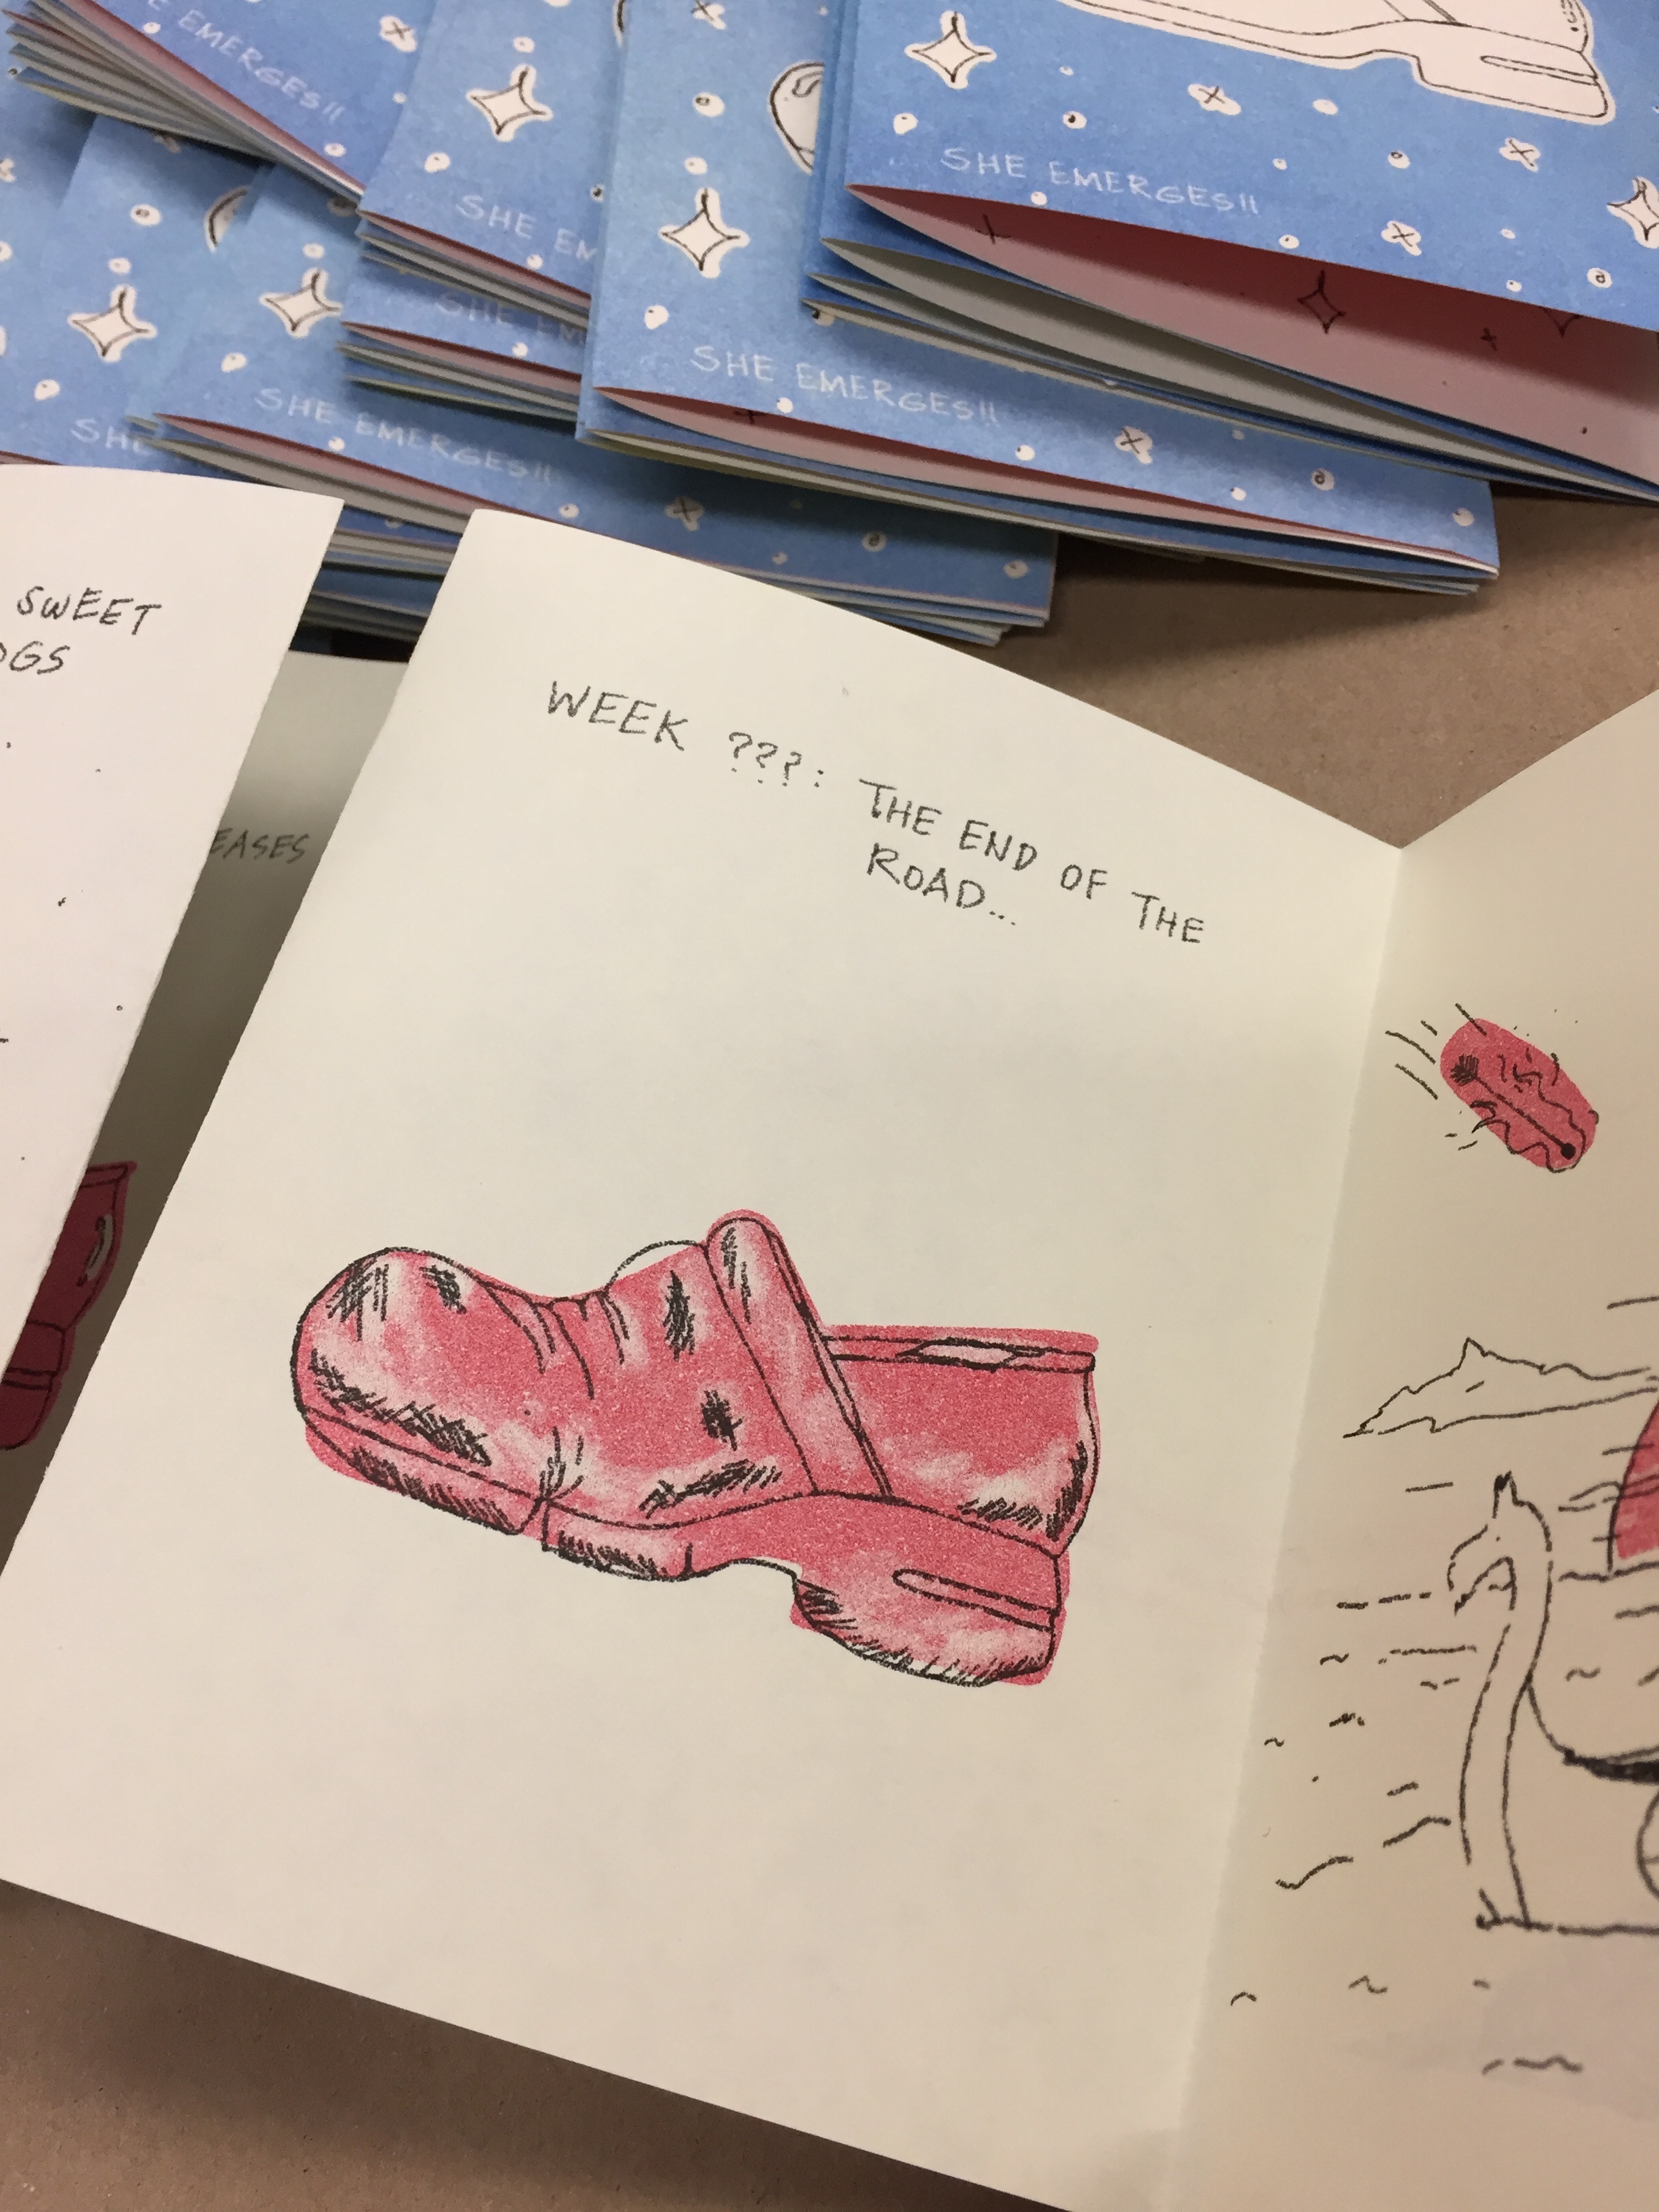 E EMERGES!!
SHE EMERGES!!
SHE EM
SHE EM
SHE EMERGES!!
SHE EMERGES!!
SHE
SWEET
OGS
EASES
WEEK ???: THE END OF THE
ROAD...